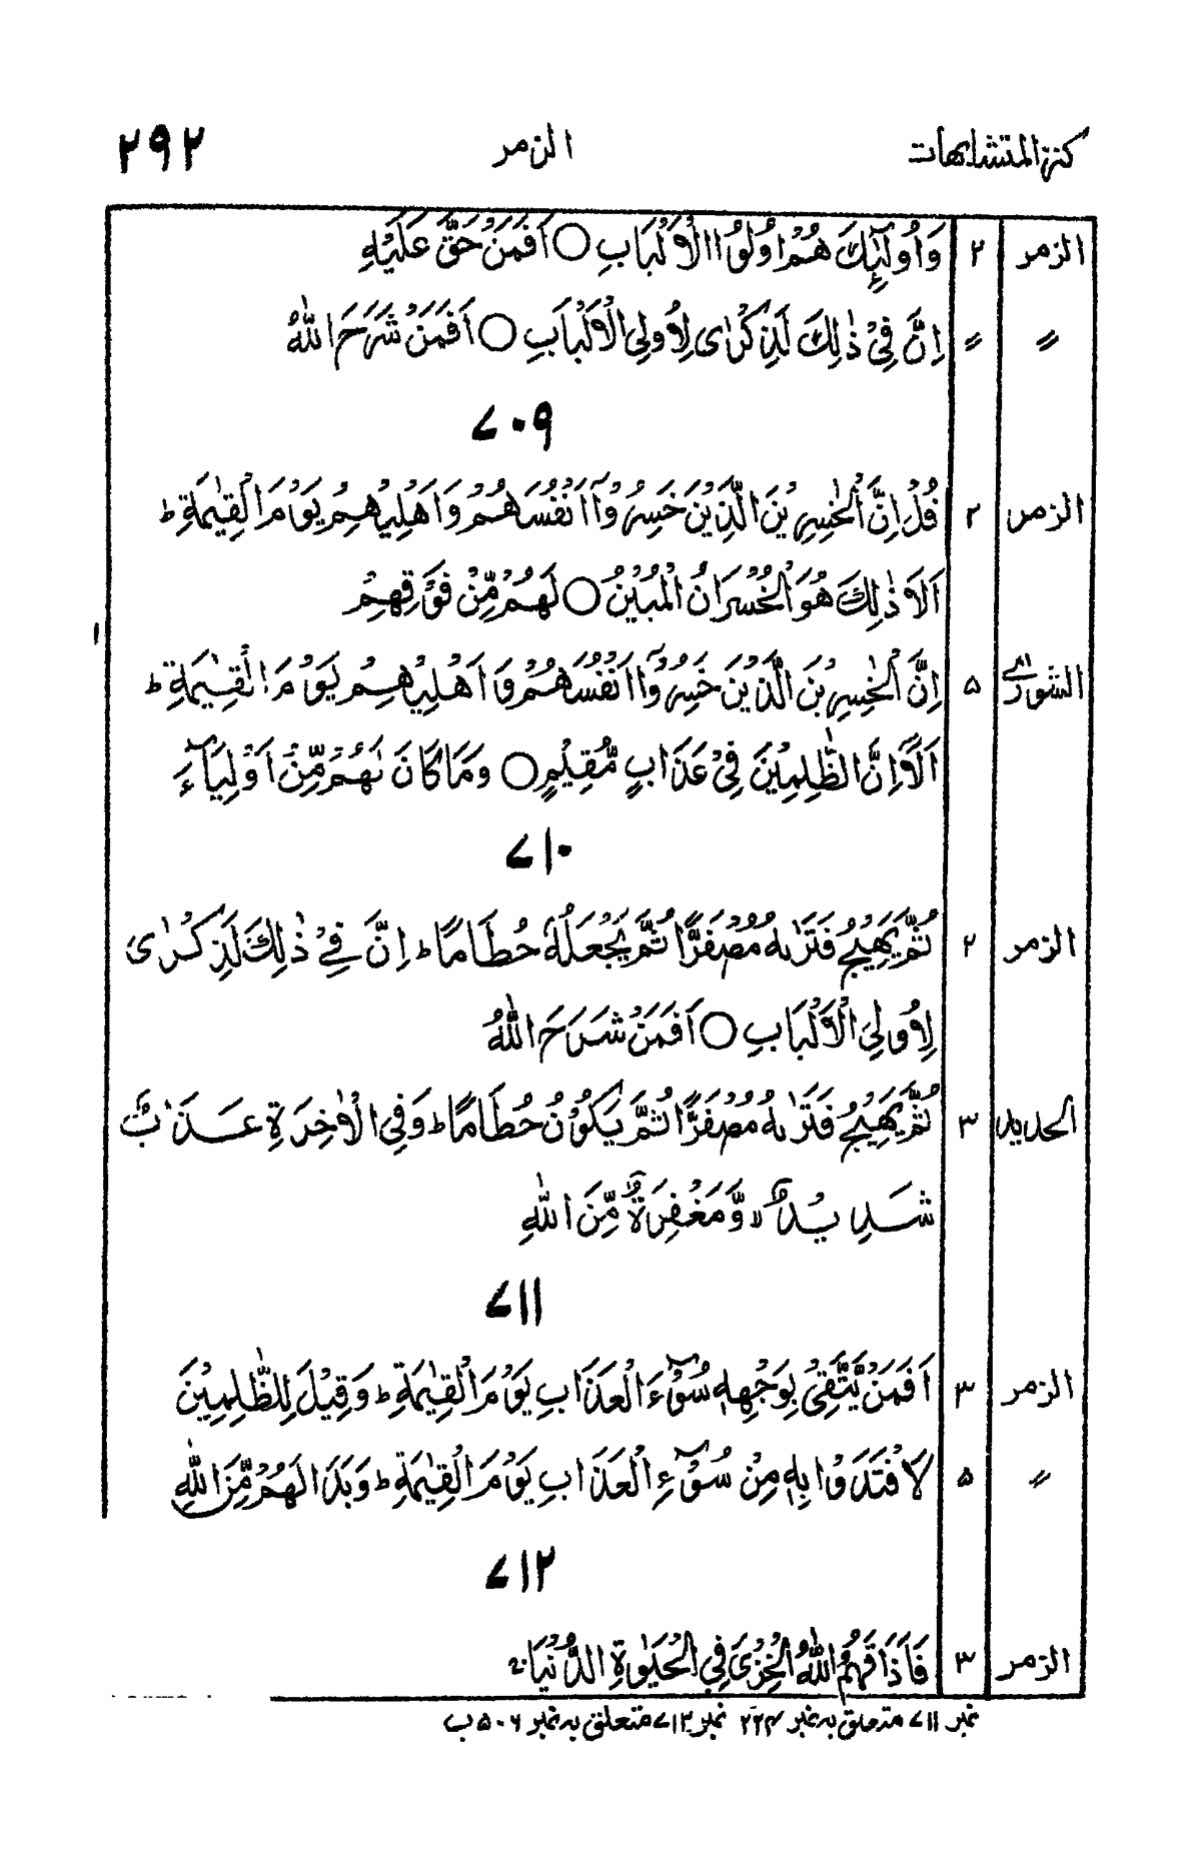 كنز المتشابهات الزمر ۲۹۲
الزمر ۲ وَاُولٰٓئِكَ هُمْ اُولُوا الْاَلْبَابِ ○ اَفَمَنْ حَقَّ عَلَيْهِ
〃 〃 اِنَّ فِيْ ذٰلِكَ لَذِكْرٰى لِاُولِي الْاَلْبَابِ ○ اَفَمَنْ شَرَحَ اللّٰهُ
۷۰۹
الزمر ۲ قُلْ اِنَّ الْخٰسِرِيْنَ الَّذِيْنَ خَسِرُوْٓا اَنْفُسَهُمْ وَاَهْلِيْهِمْ يَوْمَ الْقِيٰمَةِ ؕ
اَلَا ذٰلِكَ هُوَ الْخُسْرَانُ الْمُبِيْنُ ○ لَهُمْ مِّنْ فَوْقِهِمْ
الشورٰى ۵ اِنَّ الْخٰسِرِيْنَ الَّذِيْنَ خَسِرُوْٓا اَنْفُسَهُمْ وَاَهْلِيْهِمْ يَوْمَ الْقِيٰمَةِ ؕ
اَلَآ اِنَّ الظّٰلِمِيْنَ فِيْ عَذَابٍ مُّقِيْمٍ ○ وَمَا كَانَ لَهُمْ مِّنْ اَوْلِيَآءَ
۷۱۰
الزمر ۲ ثُمَّ يَهِيْجُ فَتَرٰىهُ مُصْفَرًّا ثُمَّ يَجْعَلُهٗ حُطَامًا ؕ اِنَّ فِيْ ذٰلِكَ لَذِكْرٰى
لِاُولِي الْاَلْبَابِ ○ اَفَمَنْ شَرَحَ اللّٰهُ
الحديد ۳ ثُمَّ يَهِيْجُ فَتَرٰىهُ مُصْفَرًّا ثُمَّ يَكُوْنُ حُطَامًا ؕ وَفِي الْاٰخِرَةِ عَذَابٌ
شَدِيْدٌ ۙ وَّمَغْفِرَةٌ مِّنَ اللّٰهِ
۷۱۱
الزمر ۳ اَفَمَنْ يَّتَّقِيْ بِوَجْهِهٖ سُوْٓءَ الْعَذَابِ يَوْمَ الْقِيٰمَةِ ؕ وَقِيْلَ لِلظّٰلِمِيْنَ
〃 ۵ لَافْتَدَوْا بِهٖ مِنْ سُوْٓءِ الْعَذَابِ يَوْمَ الْقِيٰمَةِ ؕ وَبَدَا لَهُمْ مِّنَ اللّٰهِ
۷۱۲
الزمر ۳ فَاَذَاقَهُمُ اللّٰهُ الْخِزْيَ فِي الْحَيٰوةِ الدُّنْيَا ۚ
نمبر ۷۱۱ متعلق بہ نمبر نمبر ۷۱۲ متعلق بہ نمبر ۵۰۶ ب